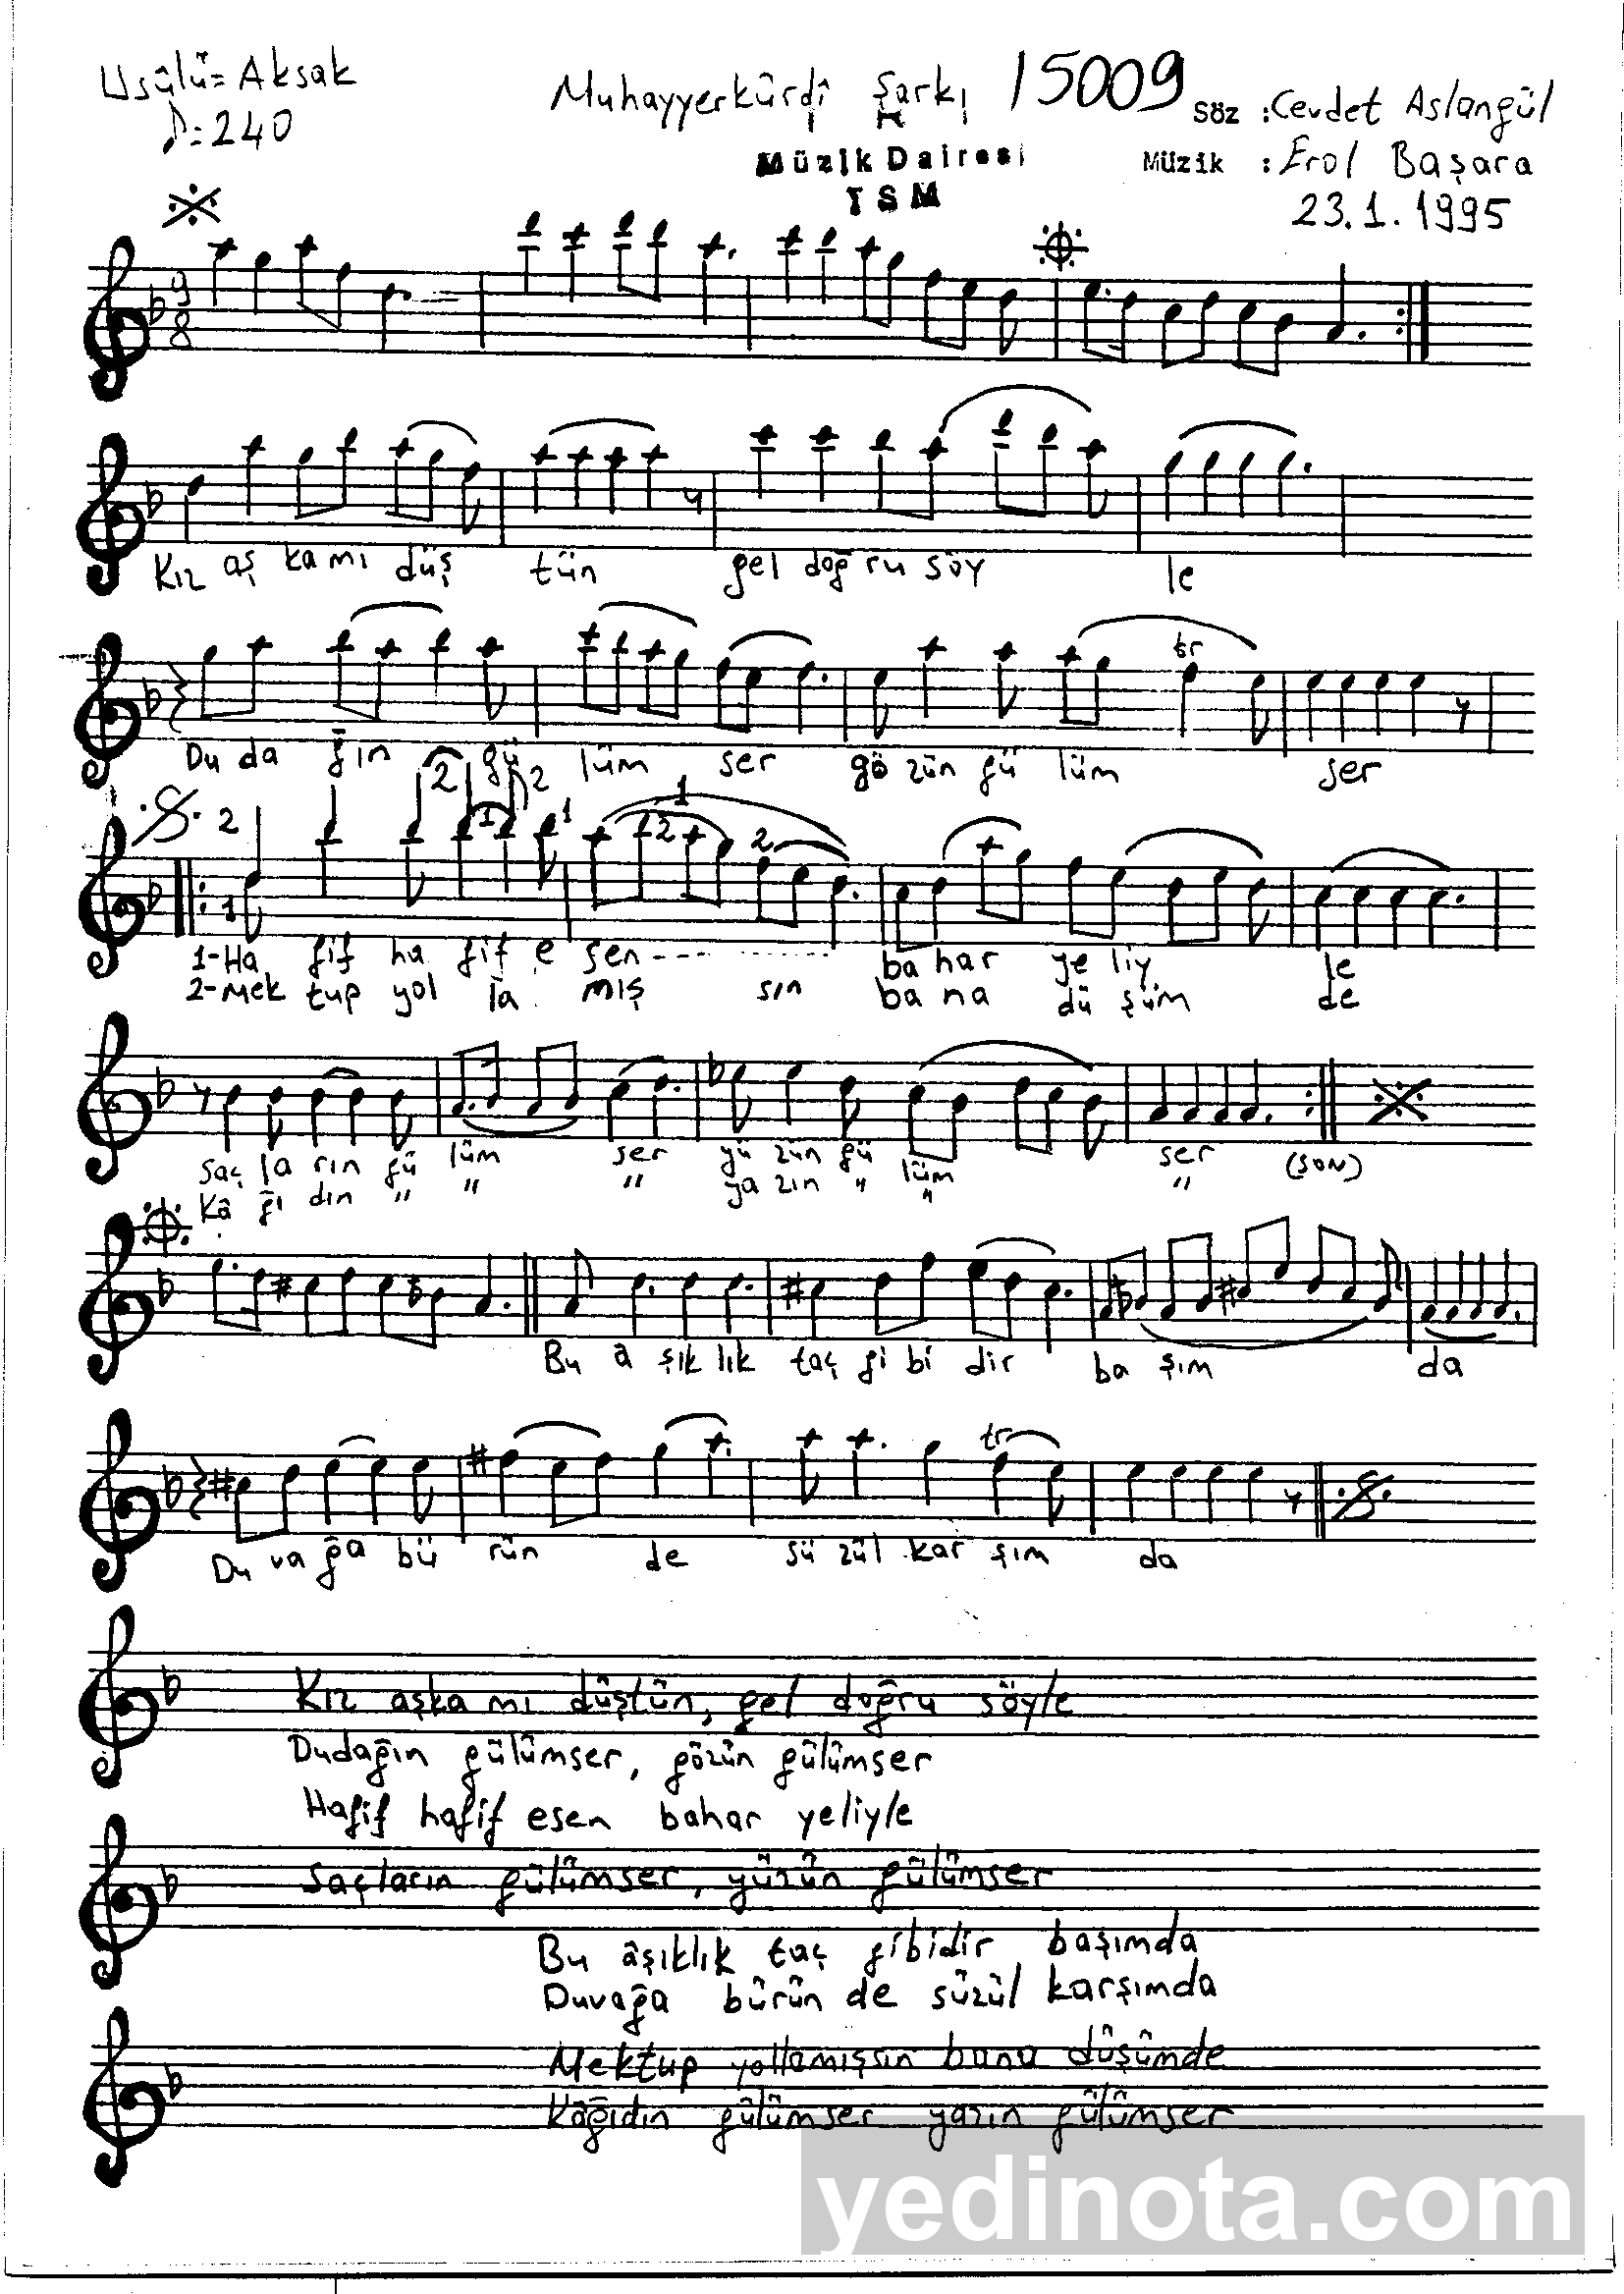 Usûlü = Aksak
♪ = 240
Muhayyerkürdî Şarkı 15009
Söz : Cevdet Aslangül
Müzik Dairesi
TSM
Müzik : Erol Başara
23.1.1995
9
8
Kız aş ka mı düş tün gel doğ ru söy le
tr
Du da ğın gü lüm ser gö zün gü lüm ser
2 2 2 1 1 1 2 2
1
1-Ha fif ha fif e sen bahar ye liy le
2-Mek tup yol la mış sın ba na dü şüm de
saç la rın gü lüm ser yü zün gü lüm ser (SON)
Kâ ğı dın " " " ya zın " " "
Bu â şık lık taç gi bi dir ba şım da
tr
Du va ğa bü rün de sü zül kar şım da
Kız aşka mı düştün, gel doğru söyle
Dudağın gülümser, gözün gülümser
Hafif hafif esen bahar yeliyle
Saçların gülümser, yüzün gülümser
Bu âşıklık taç gibidir başımda
Duvağa bürün de süzül karşımda
Mektup yollamışsın bana düşümde
Kâğıdın gülümser yazın gülümser
yedinota.com